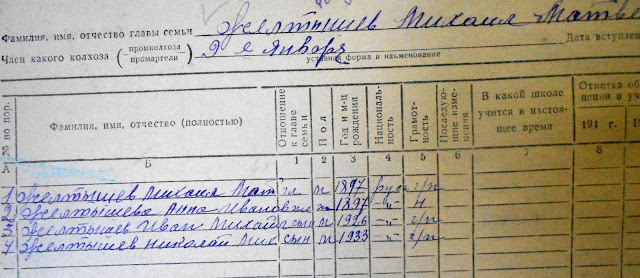 Фамилия, имя, отчество главы семьи Желтышев Михаил Матве
Член какого колхоза (промколхоза промартели) 9 е Января Дата вступлен
уставная форма и наименование
№ по пор. Фамилия, имя, отчество (полностью) Отношение к главе семьи Пол Год и м-ц рождения Националь-ность Грамот-ность Последую-щие изме-нения В какой школе учится в настоя-щее время Отметка об 194 г.
А Б 1 2 3 4 5 6 7 8
1 Желтышев Михаил Мат гл м 1897 русс г/п
2 Желтышева Анна Ивановна ж 1897 -"- н
3 Желтышев Иван Михайл сын м 1926 -"- г/п
4 Желтышев Николай Мих сын м 1933 -"- г/п